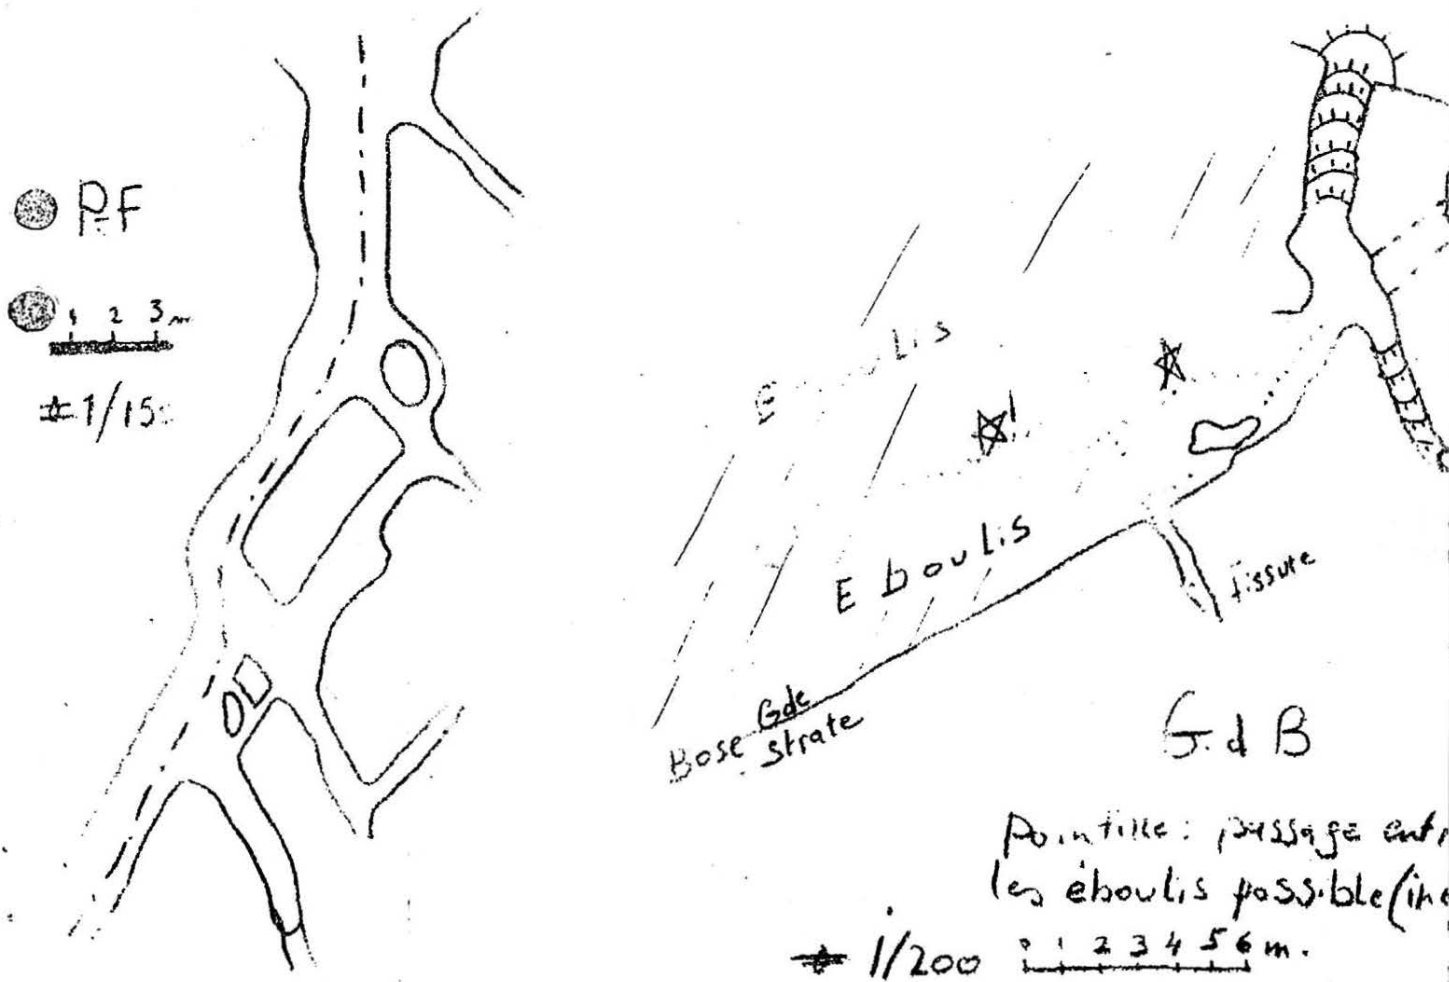 P.F
1 2 3 m
# 1/15
Eboulis
Eboulis
fissure
Base Gde
strate
G d B
Pointillé: passage ent
les éboulis possible (in
1/200 0 1 2 3 4 5 6 m.